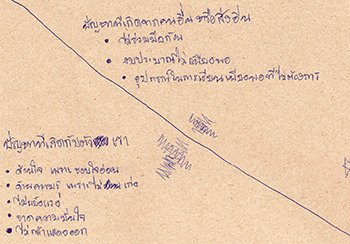 ปัญหาที่เกิดจากคนอื่น หรือสิ่งอื่น
• ไม่ร่วมมือกัน
• งบประมาณไม่เพียงพอ
• อุปกรณ์ในการเรียน เพียงพอที่ไม่ต้องการ
ปัญหาที่เกิดกับตัว เรา
• น้อยใจ เพราะ ชอบใจอ่อน
• ด้านความรู้ เพราะไม่ เก่ง
• ไม่แข็งแรง
• ขาดความมั่นใจ
• ไม่กล้าแสดงออก